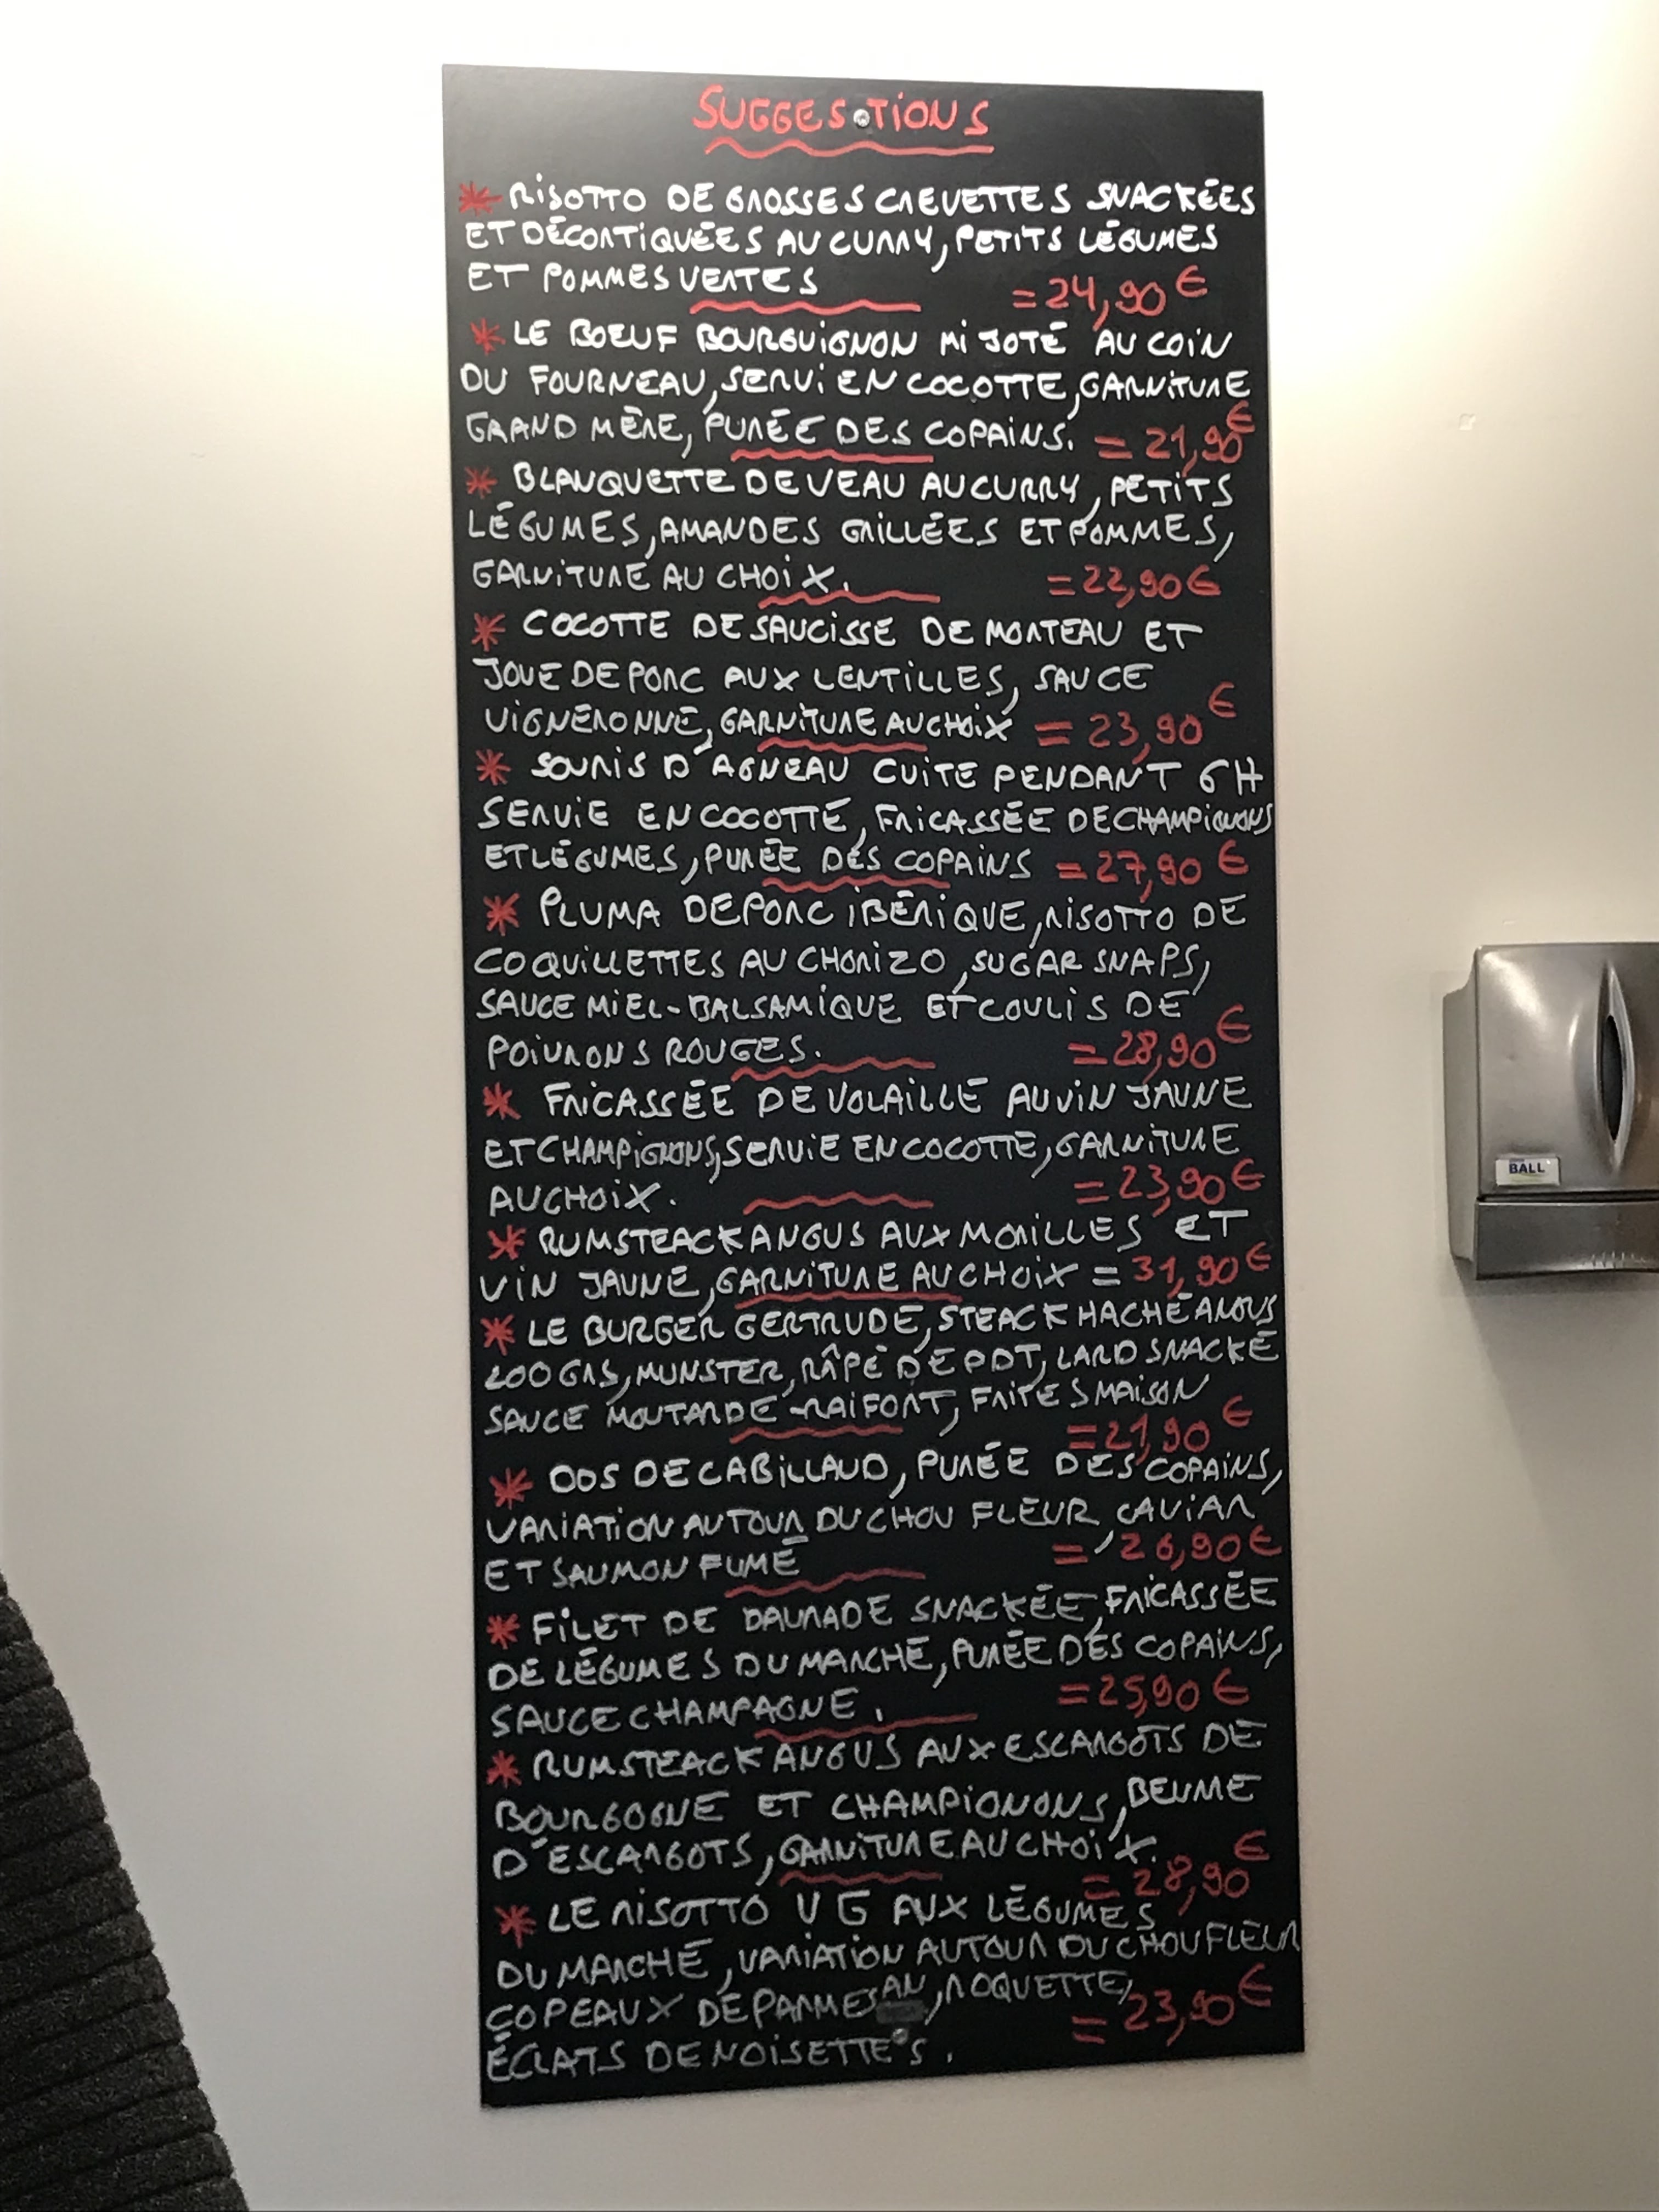 SUGGESTIONS
* RISOTTO DE GROSSES CREVETTES SNACKÉES
ET DÉCORTIQUÉES AU CURRY, PETITS LÉGUMES
ET POMMES VERTES = 24,90 €
* LE BOEUF BOURGUIGNON MIJOTÉ AU COIN
DU FOURNEAU, SERVI EN COCOTTE, GARNITURE
GRAND MÈRE, PURÉE DES COPAINS. = 21,90 €
* BLANQUETTE DE VEAU AU CURRY, PETITS
LÉGUMES, AMANDES GRILLÉES ET POMMES,
GARNITURE AU CHOIX. = 22,90 €
* COCOTTE DE SAUCISSE DE MORTEAU ET
JOUE DE PORC AUX LENTILLES, SAUCE
VIGNERONNE, GARNITURE AU CHOIX = 23,90 €
* SOURIS D'AGNEAU CUITE PENDANT 6H
SERVIE EN COCOTTE, FRICASSÉE DE CHAMPIGNONS
ET LÉGUMES, PURÉE DES COPAINS = 27,90 €
* PLUMA DE PORC IBÉRIQUE, RISOTTO DE
COQUILLETTES AU CHORIZO, SUGAR SNAPS,
SAUCE MIEL-BALSAMIQUE ET COULIS DE
POIVRONS ROUGES. = 28,90 €
* FRICASSÉE DE VOLAILLE AU VIN JAUNE
ET CHAMPIGNONS, SERVIE EN COCOTTE, GARNITURE
AU CHOIX. = 23,90 €
* RUMSTEACK ANGUS AUX MORILLES ET
VIN JAUNE, GARNITURE AU CHOIX = 31,90 €
* LE BURGER GERTRUDE, STEACK HACHÉ ANGUS
200 GRS, MUNSTER, RÂPÉ DE PDT, LARD SNACKÉ
SAUCE MOUTARDE-RAIFORT, FRITES MAISON
= 21,90 €
* DOS DE CABILLAUD, PURÉE DES COPAINS,
VARIATION AUTOUR DU CHOU FLEUR CAVIAR
ET SAUMON FUMÉ = 26,90 €
* FILET DE DAURADE SNACKÉE, FRICASSÉE
DE LÉGUMES DU MARCHÉ, PURÉE DES COPAINS,
SAUCE CHAMPAGNE. = 25,90 €
* RUMSTEACK ANGUS AUX ESCARGOTS DE
BOURGOGNE ET CHAMPIGNONS, BEURRE
D'ESCARGOTS, GARNITURE AU CHOIX.
= 28,90 €
* LE RISOTTO VG AUX LÉGUMES
DU MARCHÉ, VARIATION AUTOUR DU CHOU FLEUR
COPEAUX DE PARMESAN, ROQUETTE,
= 23,90 €
ÉCLATS DE NOISETTES.
BALL